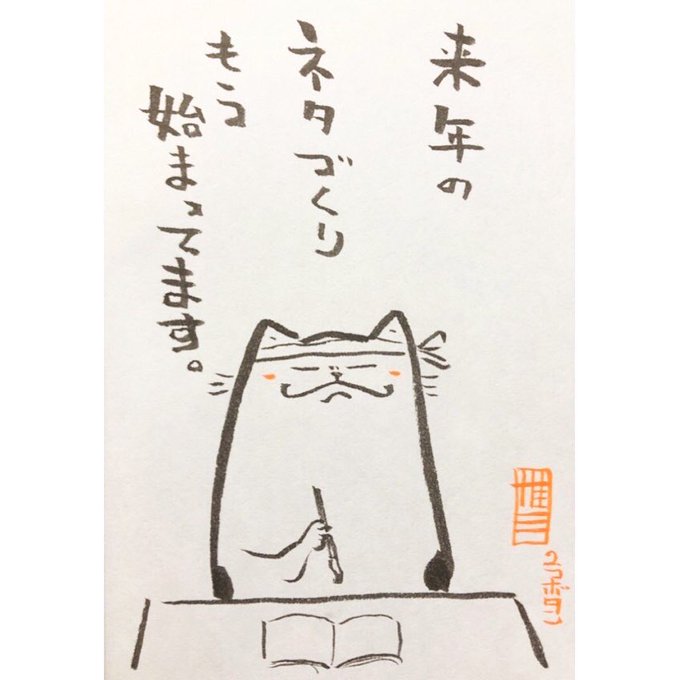 来年の
ネタづくり
もう
始まってます。